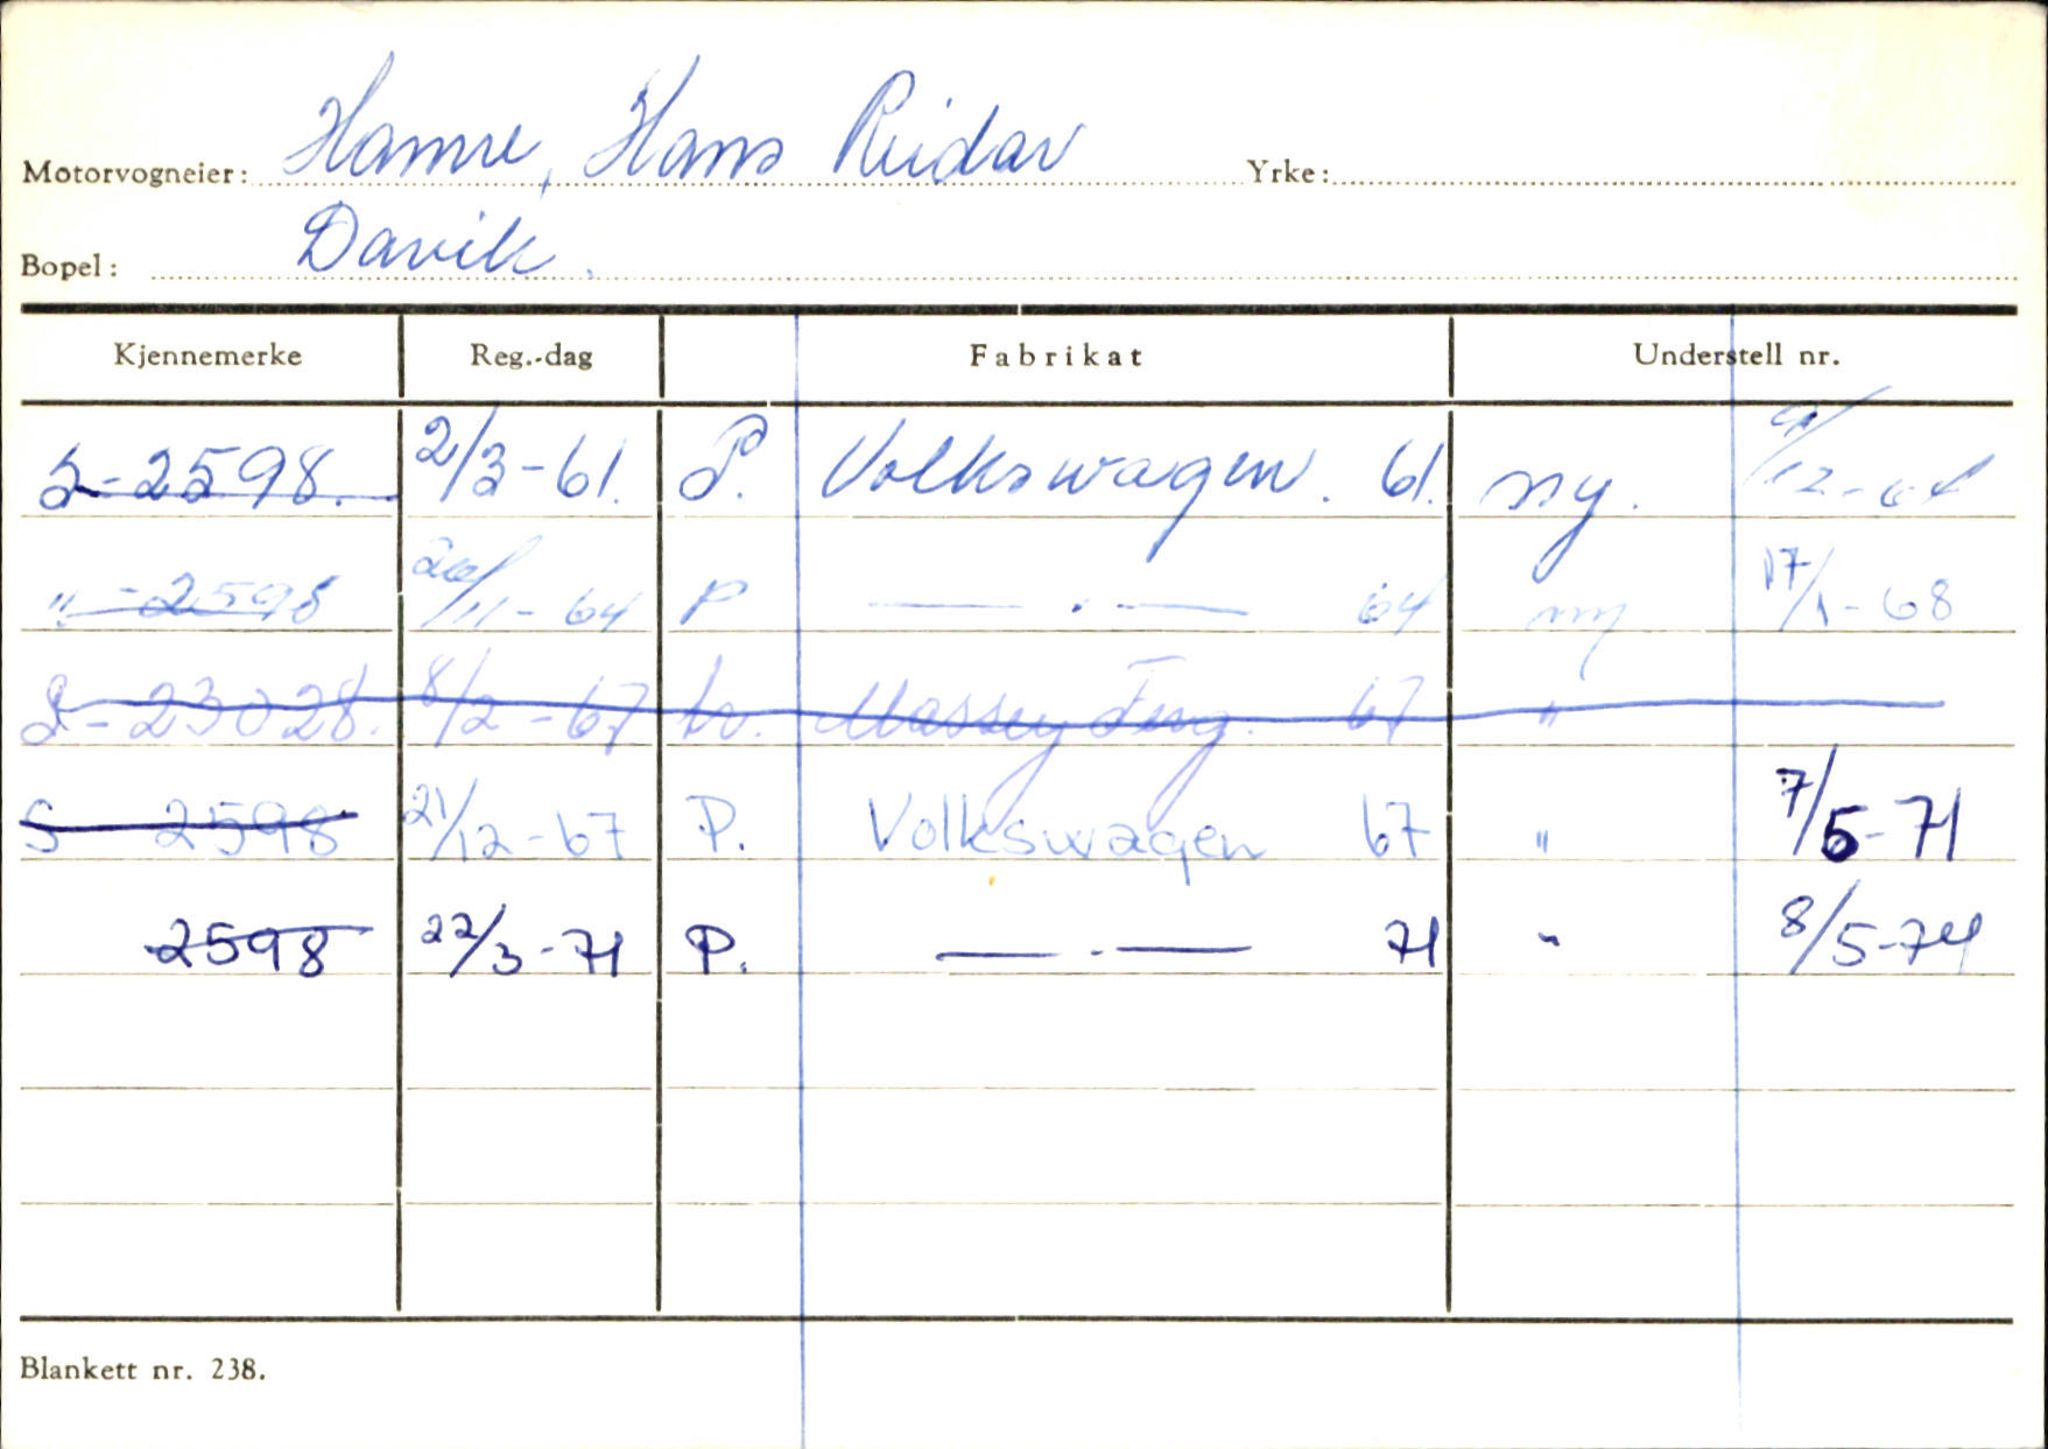 Motorvogneier: Hamre, Hans Reidar Yrke:
Bopel: Davik.
Kjennemerke Reg.-dag Fabrikat Understell nr.
S-2598. 2/3-61. P. Volkswagen. 61. ny. 9/12-64
" -2598 20/11-64 P — . — 64 ny 17/1-68
S-23028. 8/2-67 tr. Massey Ferg. 67 "
S 2598 21/12-67 P. Volkswagen 67 " 7/5-71
2598 22/3-71 P. — . — 71 " 8/5-74
Blankett nr. 238.